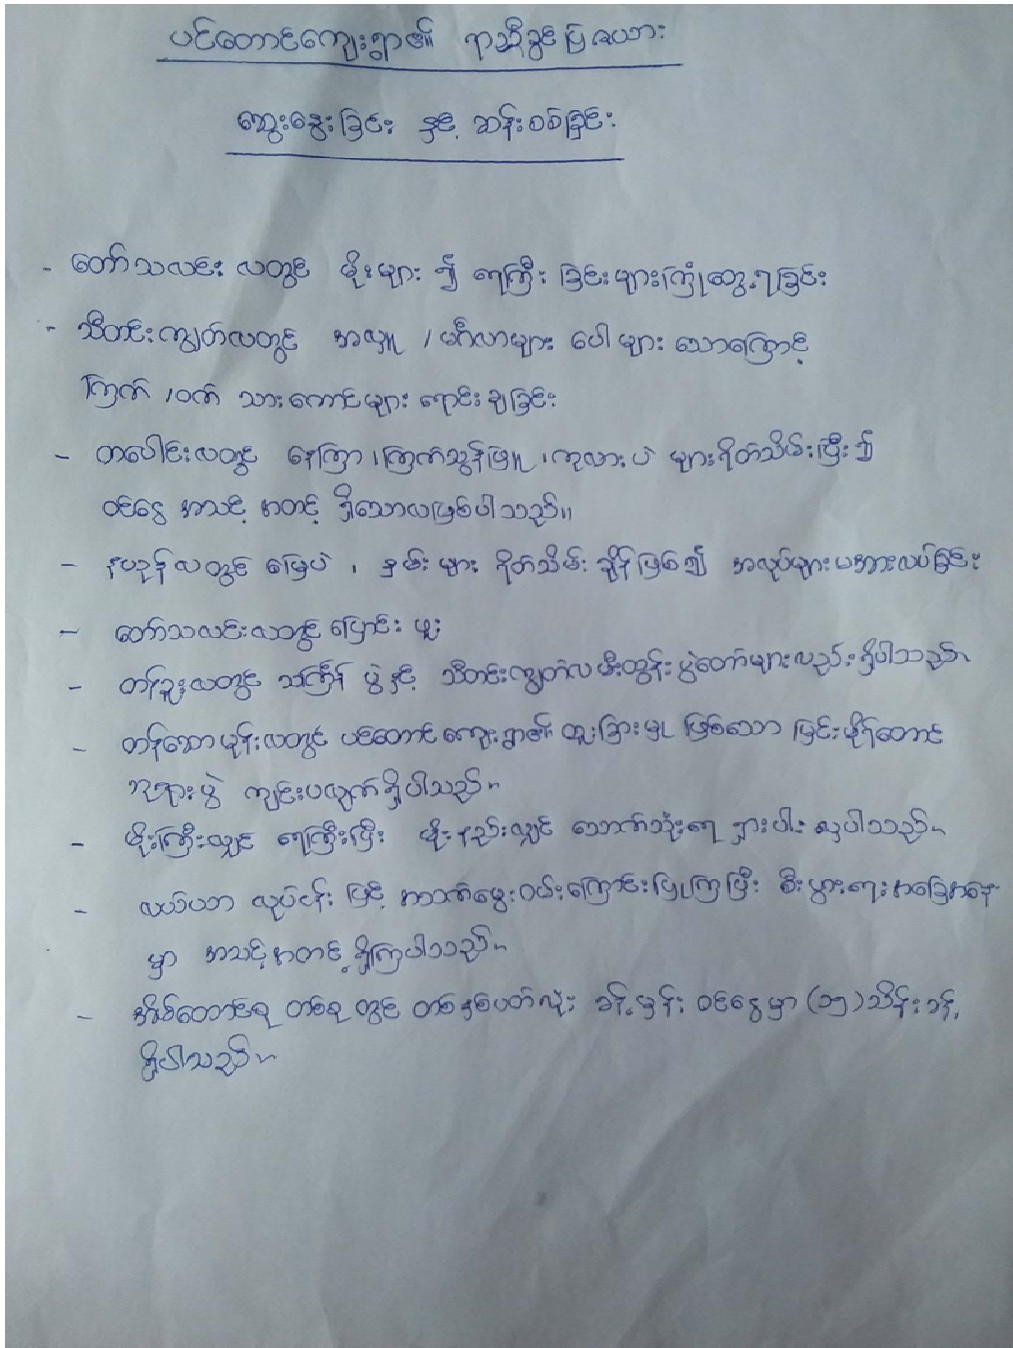 ပင်တောင်ကျေးရွာ၏ ရာသီခွင်ပြဇယား
ဆွေးနွေးခြင်း နှင့် ဆန်းစစ်ခြင်း
- တော်သလင်း လတွင် မိုးများ ၍ ရေကြီး ခြင်းများကြုံတွေ့ရခြင်း
- သီတင်းကျွတ်လတွင် အလှူ ၊ မင်္ဂလာများ ပေါများ သောကြောင့်
ကြက် ၊ ဝက် သားကောင်များ ရောင်းချခြင်း
- တပေါင်းလတွင် နေကြာ ၊ ကြက်သွန်ဖြူ ၊ ကုလားပဲ များရိတ်သိမ်းပြီး၍
ဝင်ငွေ အသင့် အတင့် ရှိသောလဖြစ်ပါသည်။
- နယုန်လတွင် မြေပဲ ၊ နှမ်းများ ရိတ်သိမ်းချိန်ဖြစ်၍ အလုပ်များမအားလပ်ခြင်း
- တော်သလင်းလတွင် ပြောင်း ဖူး
- တန်ခူးလတွင် သင်္ကြန် ပွဲ နှင့် သီတင်းကျွတ်လ မီးထွန်းပွဲတော်များလည်းရှိပါသည်။
- တန်ဆောမုန်းလတွင် ပင်တောင်ကျေးရွာ၏ ထူးခြားမှု ဖြစ်သော မြင်းမိုရ်တောင်
ဘုရားပွဲ ကျင်းပလျက်ရှိပါသည်။
- မိုးကြီးလျှင် ရေကြီးပြီး မိုးနည်းလျှင် သောက်သုံးရေ ရှားပါးလှပါသည်။
- လယ်ယာ လုပ်ငန်း ဖြင့် အသက်မွေးဝမ်းကြောင်းပြုကြပြီး စီးပွားရေးအခြေအနေ
မှာ အသင့်အတင့် ရှိကြပါသည်။
- အိမ်ထောင်စု တစ်စု တွင် တစ်နှစ်ပတ်လုံး ခန့်မှန်း ဝင်ငွေမှာ (၁၅) သိန်းခန့်
ရှိပါသည်။